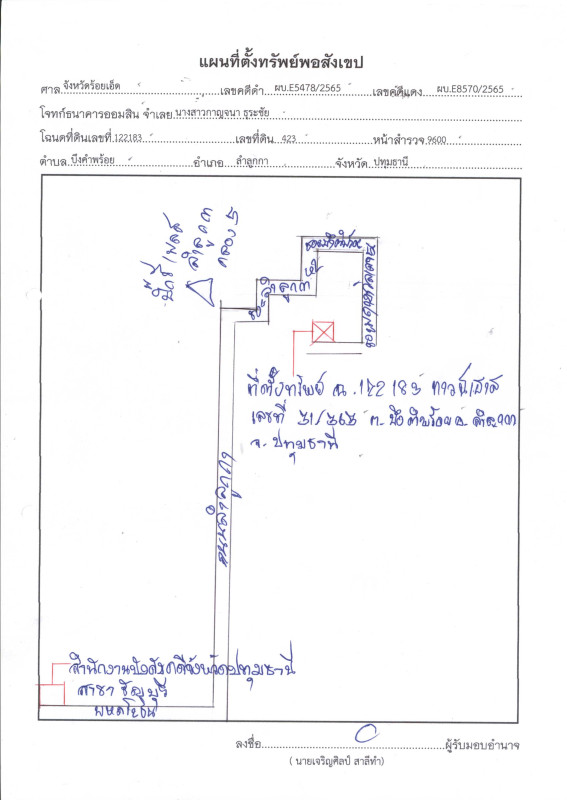 แผนที่ตั้งทรัพย์พอสังเขป
ศาล จังหวัดร้อยเอ็ด เลขคดีดำ ผบ.E5478/2565 เลขคดีแดง ผบ.E8570/2565
โจทก์ธนาคารออมสิน จำเลย นางสาวกาญจนา ธุระชัย
โฉนดที่ดินเลขที่ 122183 เลขที่ดิน 423 หน้าสำรวจ 9600
ตำบล บึงคำพร้อย อำเภอ ลำลูกกา จังหวัด ปทุมธานี
ลำลูกกา
คลอง 5
ที่ตั้งทรัพย์ ฉ. 122183 ทาวน์เฮ้าส์
เลขที่ ต. บึงคำพร้อย อ. ลำลูกกา
จ. ปทุมธานี
ถนนลำลูกกา
สำนักงานบังคับคดีจังหวัดปทุมธานี
สาขา ธัญบุรี
พหลโยธิน
ลงชื่อ ผู้รับมอบอำนาจ
( นายเจริญศิลป์ สาลีทำ)